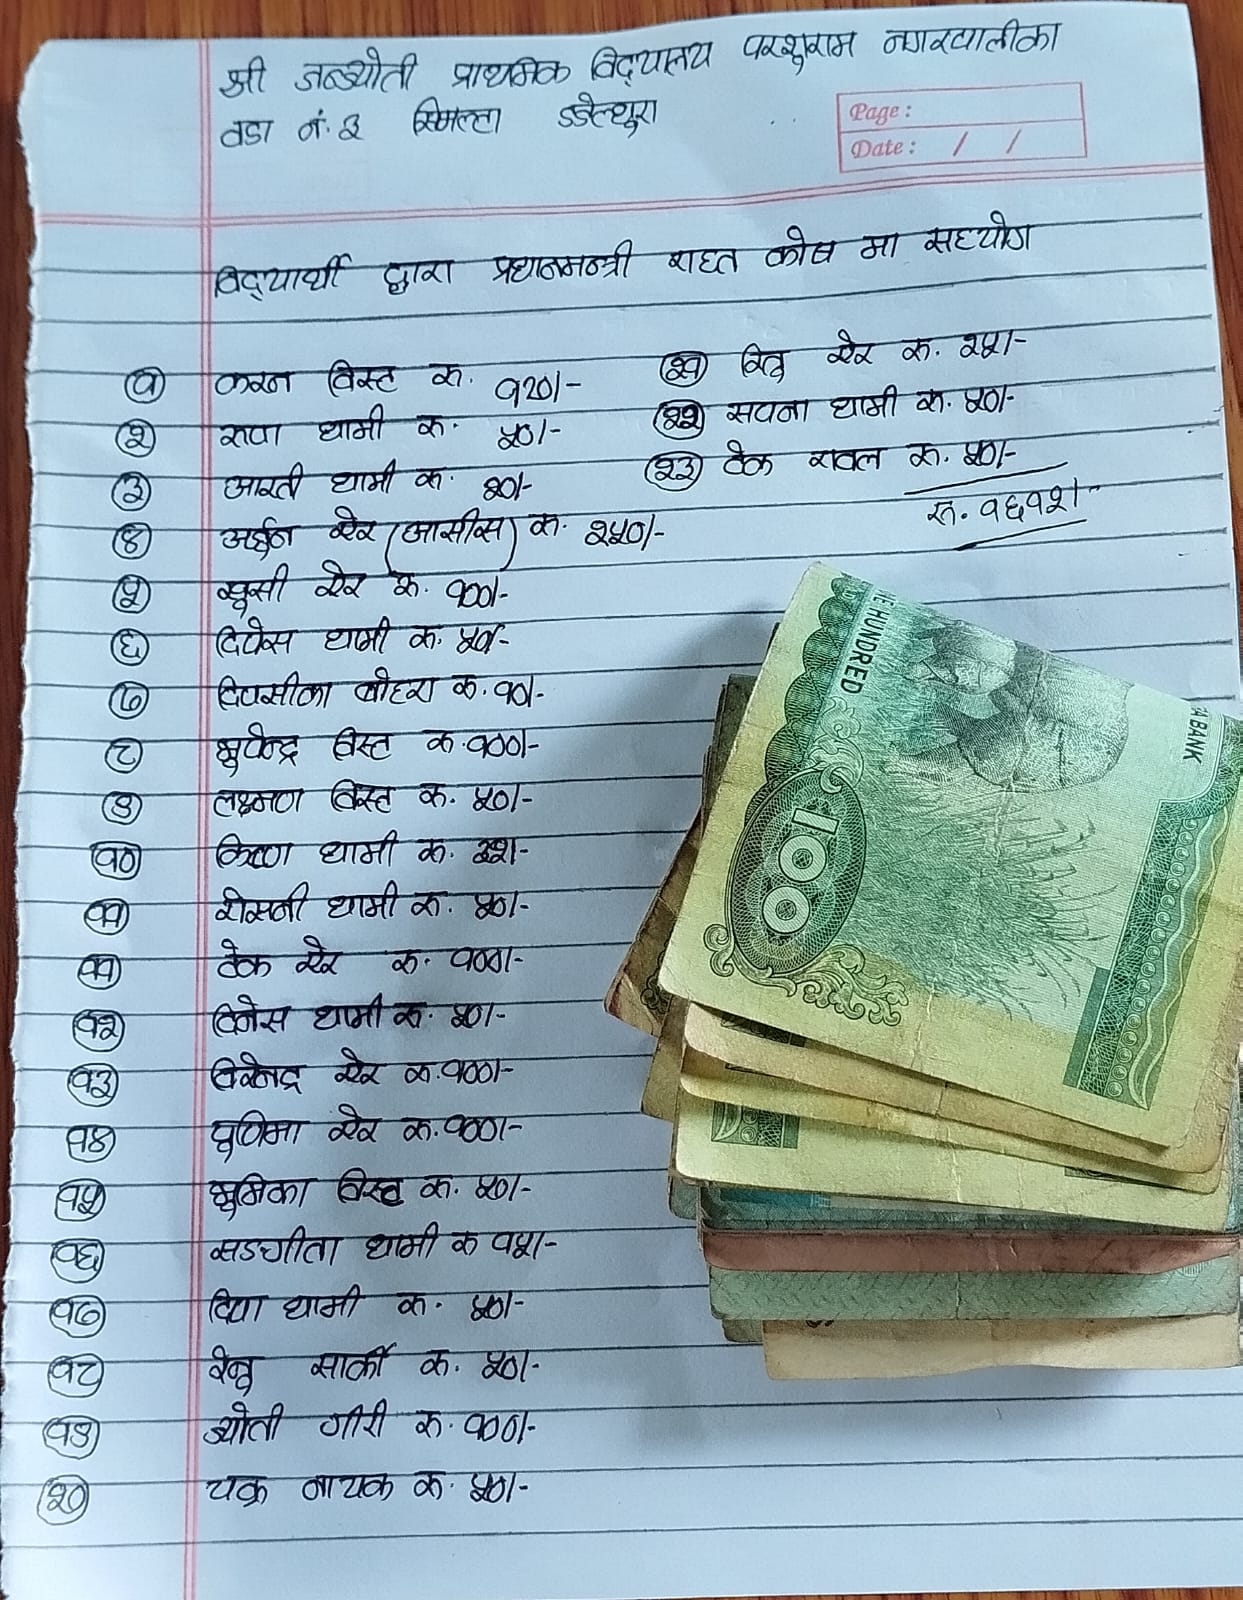 श्री जनज्योती प्राथमिक विद्यालय परशुराम नगरपालीका
वडा नं. ३ सिमल्टा डडेल्धुरा
Page:
Date: / /
विद्यार्थी द्वारा प्रधानमन्त्री राहत कोष मा सहयोग
१ करन विस्ट रु. १२०/-
२ रुपा धामी रु. ५०/-
३ आरती धामी रु. २०/-
४ अर्जुन सेर (आसीस) रु. २५०/-
५ खुसी सेर रु. १००/-
६ दिपेस धामी रु. ५०/-
७ दिपसीका बोहरा रु. १०/-
८ भुपेन्द्र विस्ट रु. १००/-
९ लक्ष्मण विस्ट रु. ५०/-
१० किष्ण धामी रु.
११ रोसनी धामी रु. ५०/-
११ टेक सेर रु. १००/-
१२ दिनेस धामी रु. ५०/-
१३ विरेन्द्र सेर रु. १००/-
१४ पुर्णिमा सेर रु. १००/-
१५ भुमिका विस्ट रु. ५०/-
१६ सङगीता धामी रु १५/-
१७ दिपा धामी रु. ५०/-
१८ रेनु सार्की रु. ५०/-
१९ ज्योती गीरी रु. १००/-
२० चक्र नायक रु. ५०/-
२१ रितु सेर रु. २५/-
२२ सपना धामी रु. ५०/-
२३ टेक रावल रु. ५०/-
रु. १६१२/-
ONE HUNDRED
100
BANK